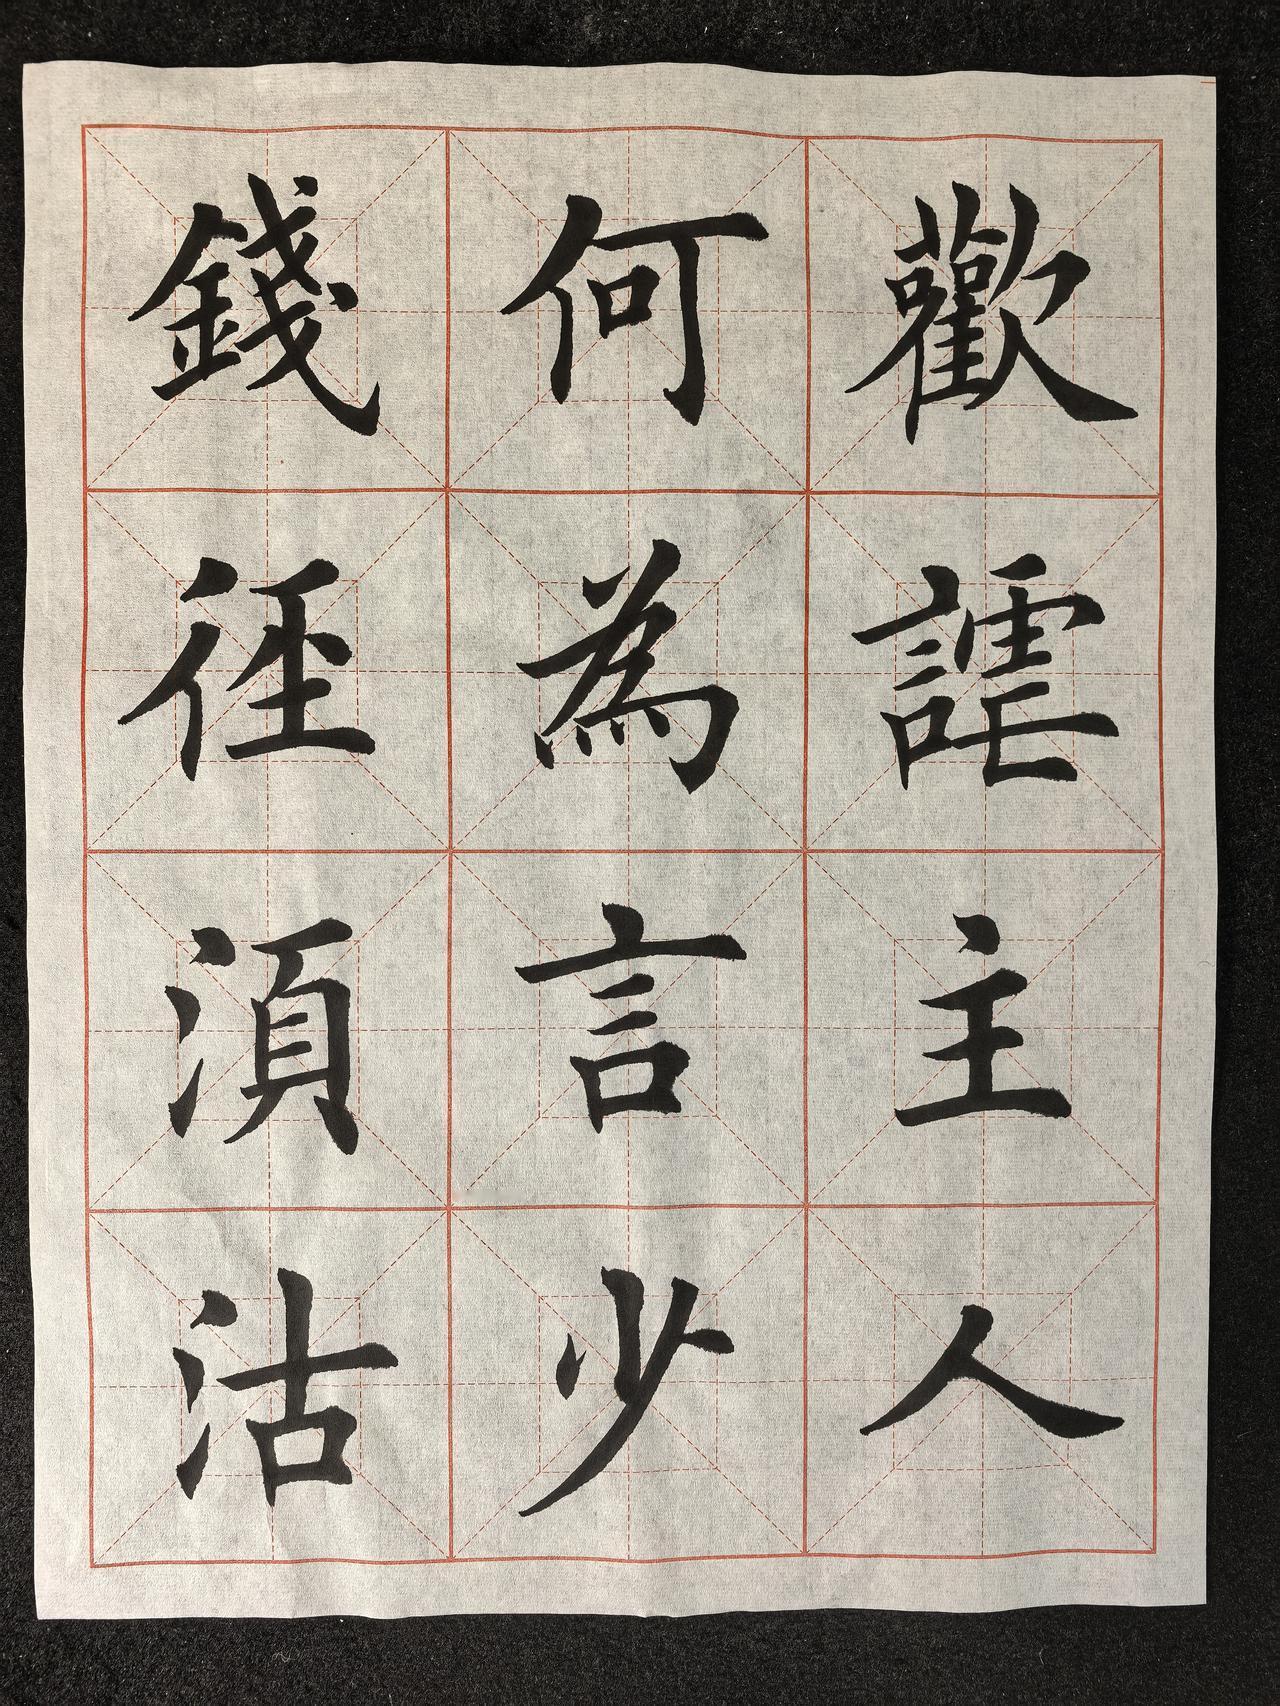 歡謔主人
何為言少
錢徑須沽